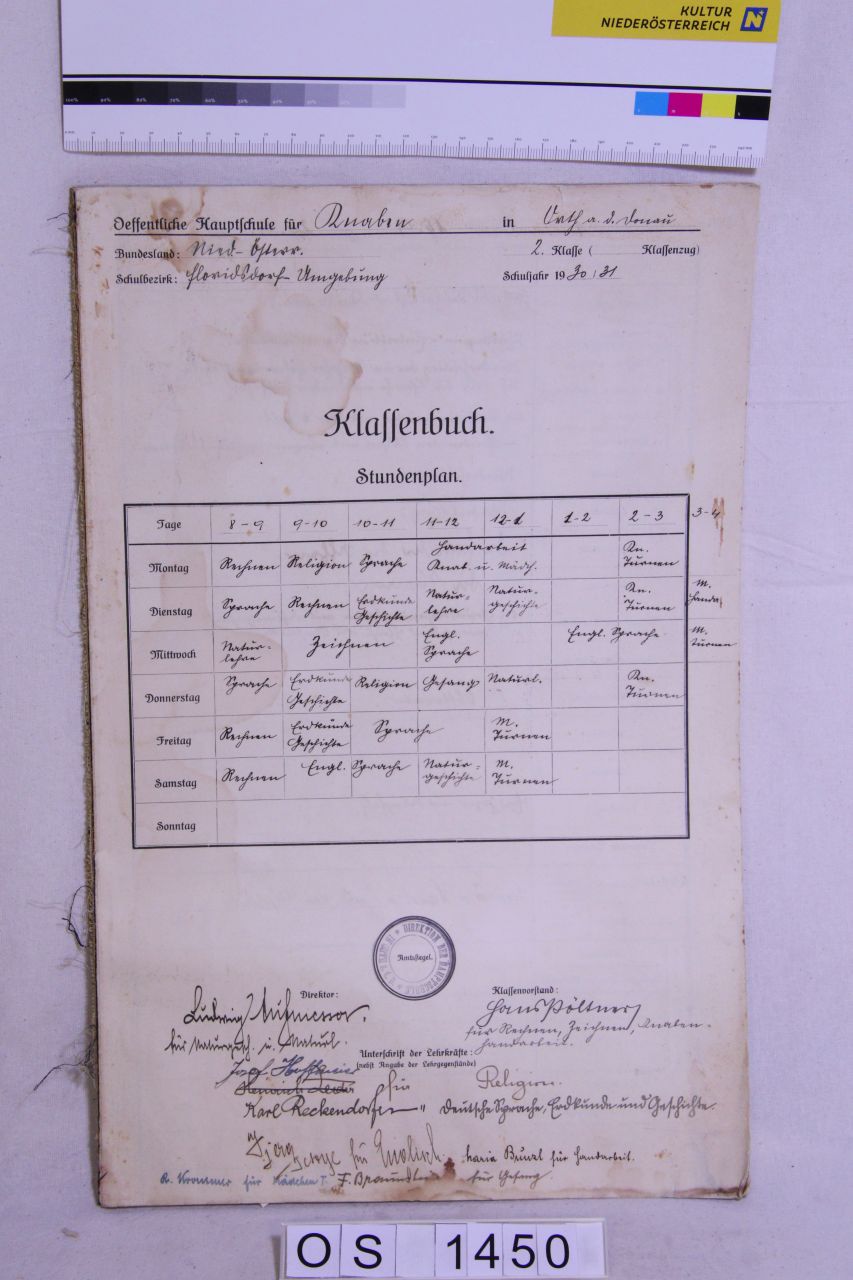 KULTUR
NIEDERÖSTERREICH
Oeffentliche Hauptschule für Knaben in Orth a. d. Donau
Bundesland: Nied-Österr. 2. Klasse ( Klassenzug)
Schulbezirk: Floridsdorf-Umgebung Schuljahr 1930/31
Klassenbuch.
Stundenplan.
Tage 8-9 9-10 10-11 11-12 12-1 1-2 2-3 3-4
Montag Rechnen Religion Sprache Handarbeit Knab. u. Mädch. Kn. Turnen
Dienstag Sprache Rechnen Erdkunde Geschichte Naturlehre Naturgeschichte Kn. Turnen M. Handa.
Mittwoch Natur-lehre Zeichnen Engl. Sprache Engl. Sprache M. Turnen
Donnerstag Sprache Erdkunde Geschichte Religion Gesang Naturl. Kn. Turnen
Freitag Rechnen Erdkunde Geschichte Sprache M. Turnen
Samstag Rechnen Engl. Sprache Natur-geschichte M. Turnen
Sonntag
DIREKTION DER HAUPTSCHULE
Amtssiegel.
Direktor: Klassenvorstand:
Ludwig Hans Pöltner
für Naturgesch. u. Naturl. für Rechnen, Zeichnen, Knaben-
handarbeit.
Unterschrift der Lehrkräfte:
(nebst Angabe der Lehrgegenstände)
Josef für Religion.
Heinrich
Karl Reckendorfer " Deutsche Sprache, Erdkunde und Geschichte.
für Englisch. Maria für Handarbeit.
für Mädchen T. F. für Gesang.
OS 1450